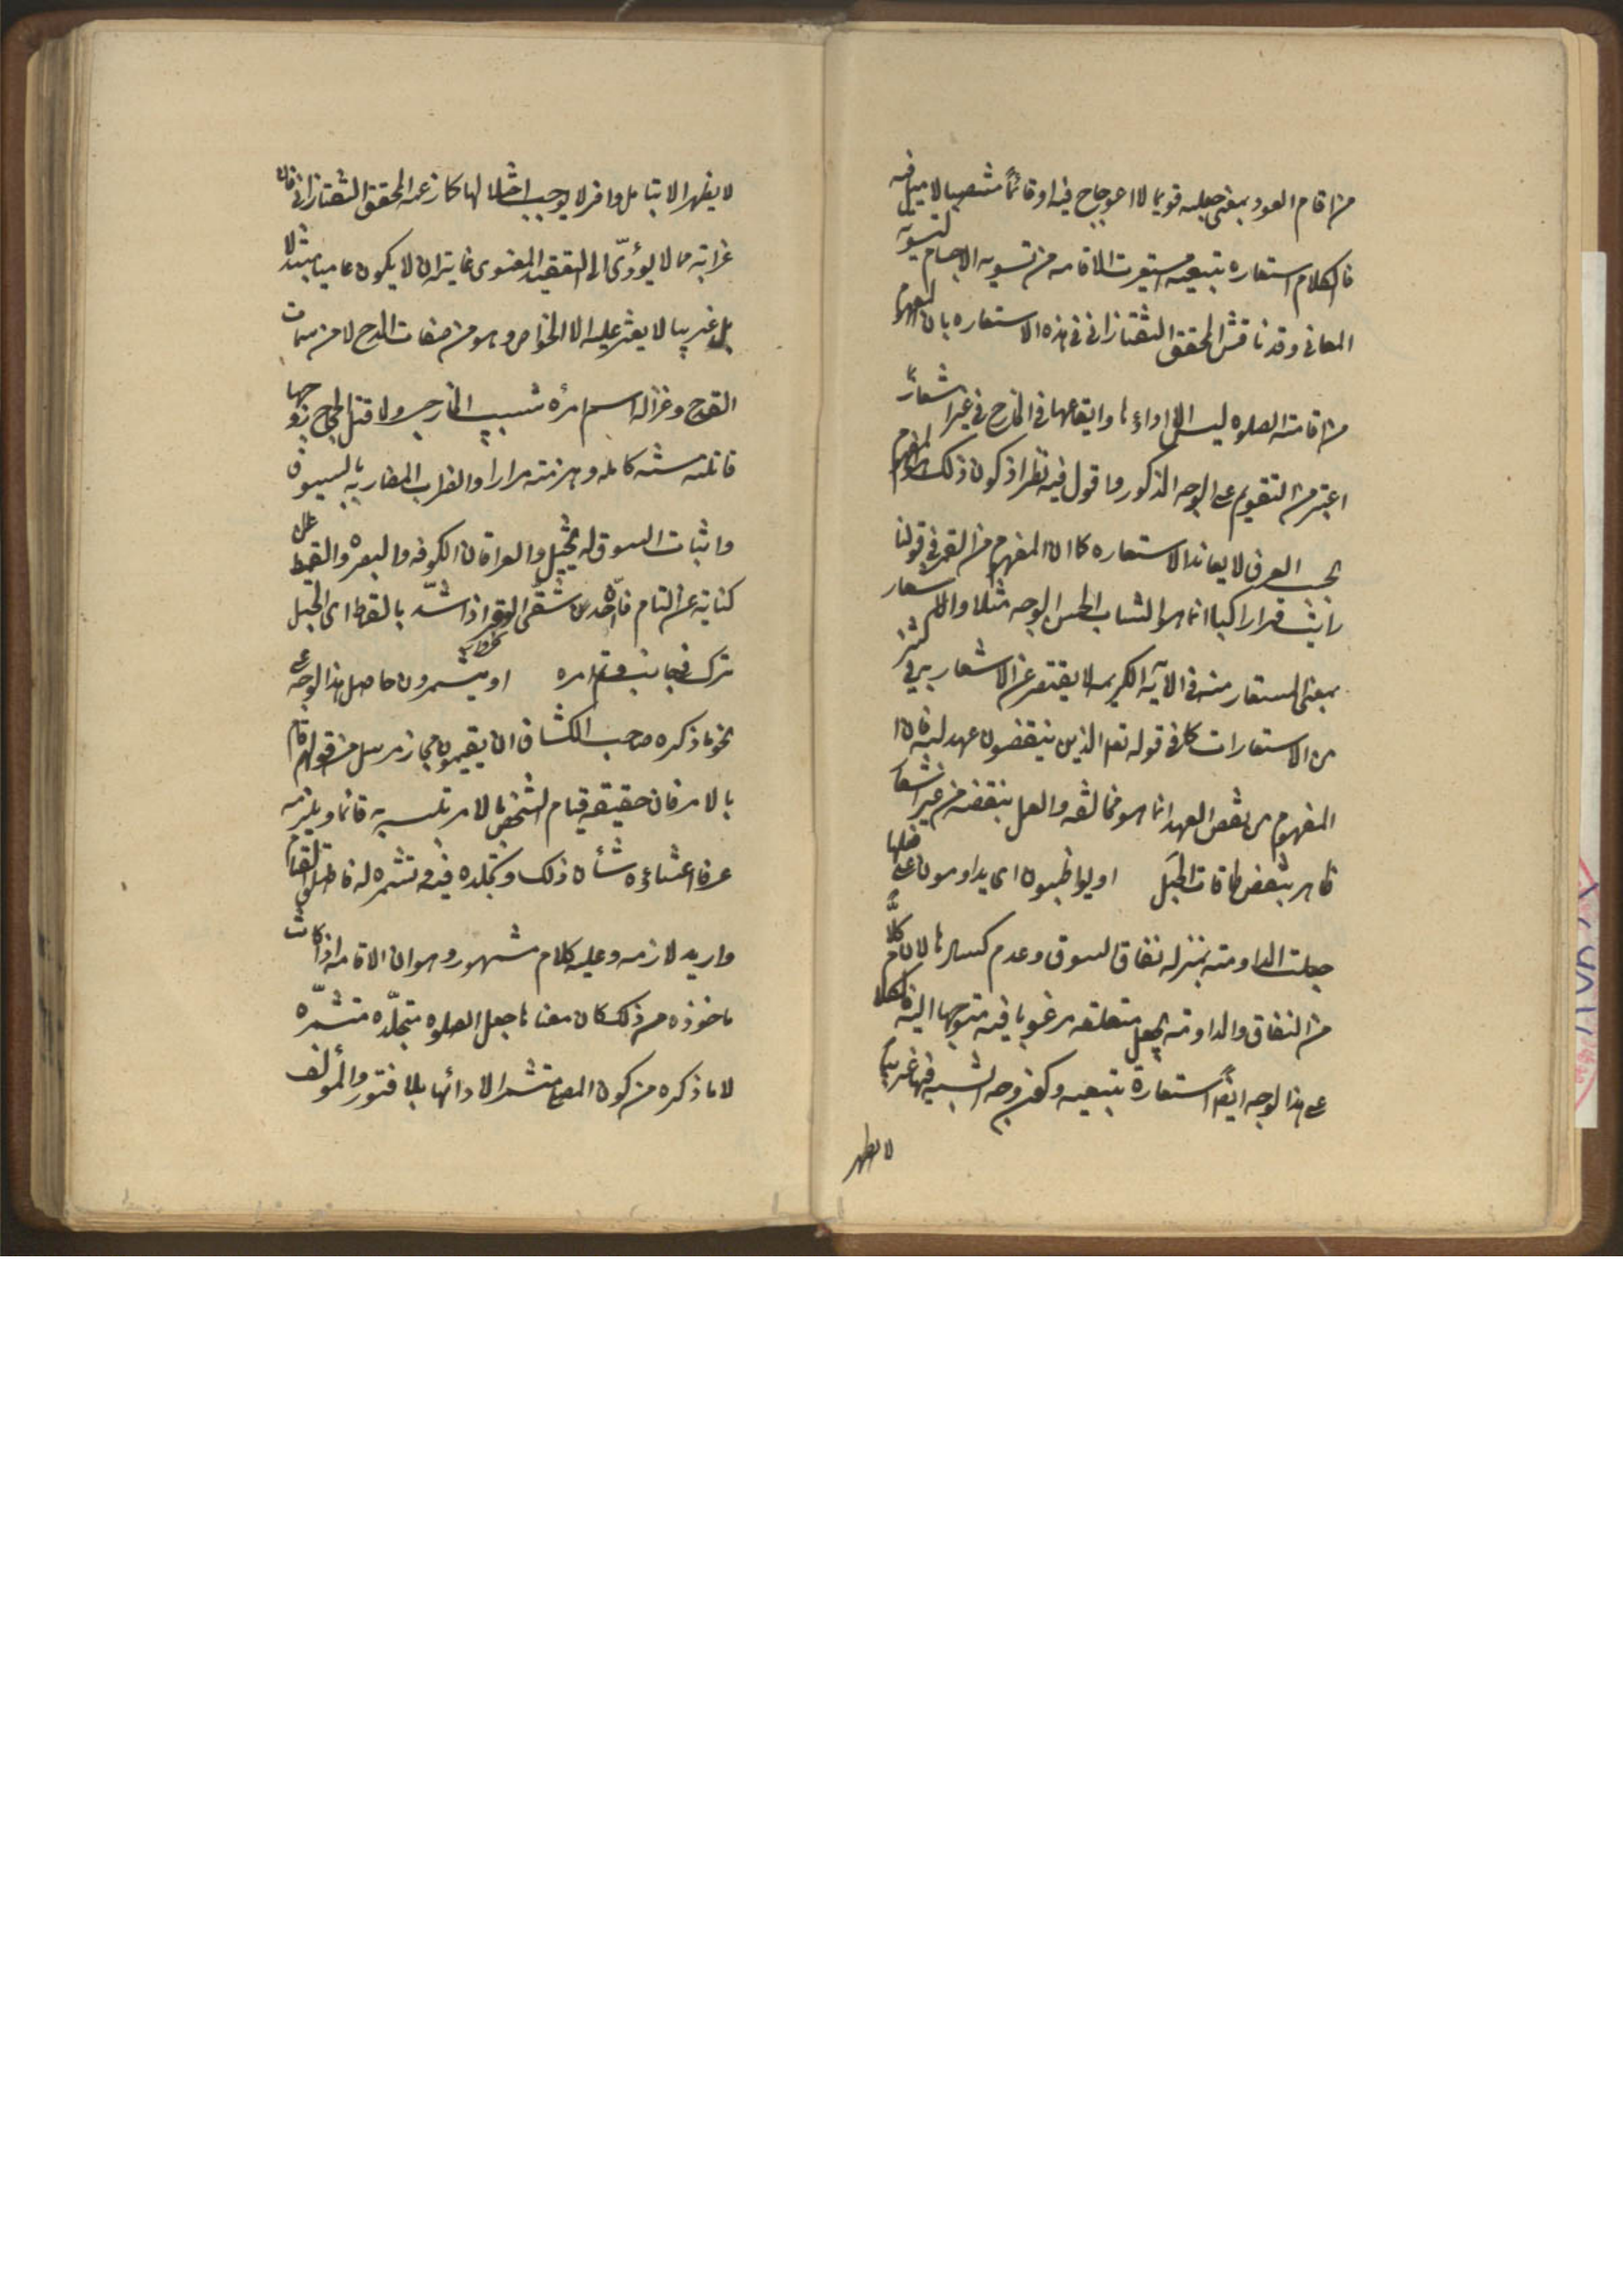 من اقام العود بمعنى جعله قويما لا اعوجاج فيه او قائماً منتصبا لا ميل فيه
فالكلام استعاره تبعيه استعيرت الاقامه من تسويه الاجسام لتسوية
المعانى وقد ناقش المحقق التفتازانى فى هذه الاستعاره بان المفهوم
من اقامة الصلوه ليس الا اداءها وايقاعها فى الخارج من غير اشعار بما
اعتبر من التقويم على الوجه المذكور واقول فيه نظر اذ كون ذلك هو المفهوم
بحسب العرف لا يعاند الاستعاره كما ان المفهوم من القمر فى قولنا
رايت قمرا راكبا انما هو الشاب الحسن الوجه مثلا والاشعار
بمعنى المستعار منه فى الاية الكريمه لا يقصر عن الاشعار به فى كثير
من الاستعارات كما فى قوله تعالى الذين ينقضون عهد الله فان
المفهوم من نقض العهد انما هو مخالفته والعمل بنقيضه من غير اشعار
ظاهر بنقض طاقات الحبل او يواظبون اى يداومون على فعلها
جعلت المداومة بمنزله نفاق السوق وعدم كسادها لان كلاًّ
من النفاق والمداومة يجعل متعلقه مرغوبا فيه متوجها اليه فالكلام
على هذا الوجه ايضاً استعارة تبعيه وكون وجه الشبه فيها غريباً
لا يظهر
لا يظهر الا بتامل وافر لا يوجب اخلالها كما زعمه المحقق التفتازانى فان
غرابته مما لا يؤدّى الى التعقيد المعنوى غايته ان لا يكون عاميا مبتذلا
بل غريبا لا يعثر عليه الا الخواص وهو من صفات المدح لا من سمات
القدح وغزاله اسم امرأة شبيب الخارجى ولما قتل الحجاج زوجها
قاتلته سنه كامله وهزمته مرارا والضراب المضاربه بالسيوف
واثبات السوق له تخييل والعراقان الكوفه والبصره والقمط
كنايه عن التام فان احد شقّى الوقر اذا شدّ بالقمط اى الحبل
ترك فى جانب وتم امره او يتشمرون حاصل هذا الوجه على
نحو ما ذكره صاحب الكشاف ان يقيمون مجاز مرسل من قولهم قام
بالامر فان حقيقة قيام الشخص بالامر تلبسه به قائما ويلزمه
عرفا اعتناؤه بشأن ذلك وتجلده فيه وتشمره له فاطلق القيام
واريد لازمه وعليه كلام مشهور وهو ان الاقامه اذا كانت
ماخوذه من ذلك كان معناها جعل الصلوه متجلّده متشمّره
لا ما ذكره من كون المصلى متشمرا لادائها بلا فتور والمؤلف